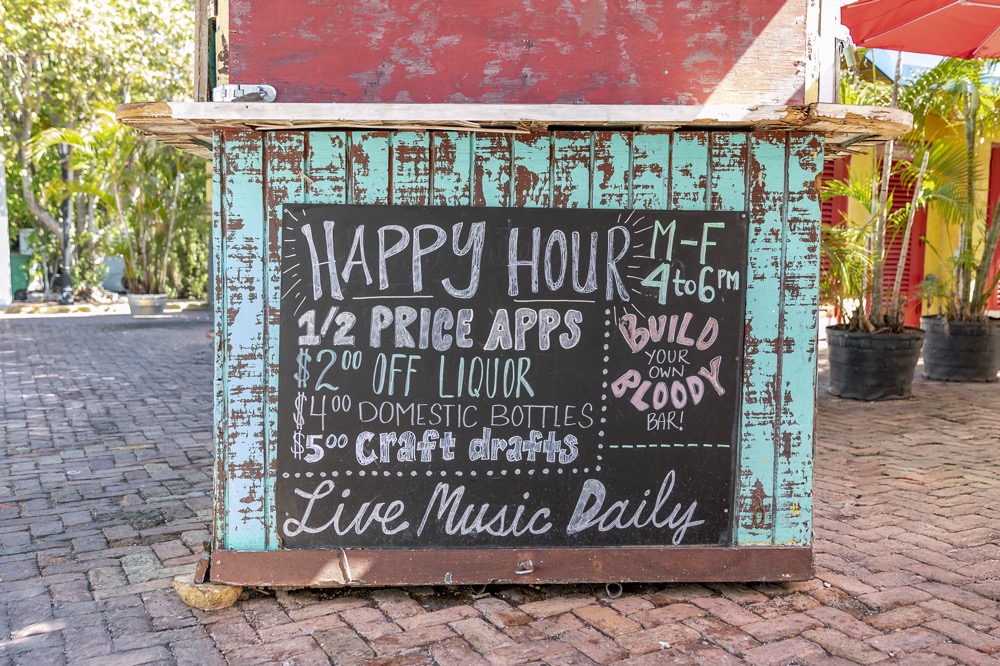 HAPPY HOUR
M-F
4 to 6 PM
1/2 PRICE APPS
$2.00 OFF LIQUOR
$4.00 DOMESTIC BOTTLES
$5.00 craft drafts
BUILD
YOUR
OWN
BLOODY
BAR!
Live Music Daily